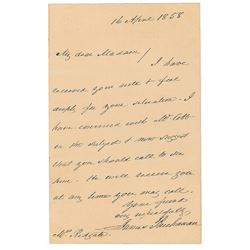 16 April 1858
My dear Madam/
I have
received your note & feel
deeply for your situation. I
have conversed with Mr Cobb
on the subject & now suggest
that you should call to see
him. He will receive you
at any time you may call.
Your friend
very respectfully
James Buchanan
Mrs Ridgate